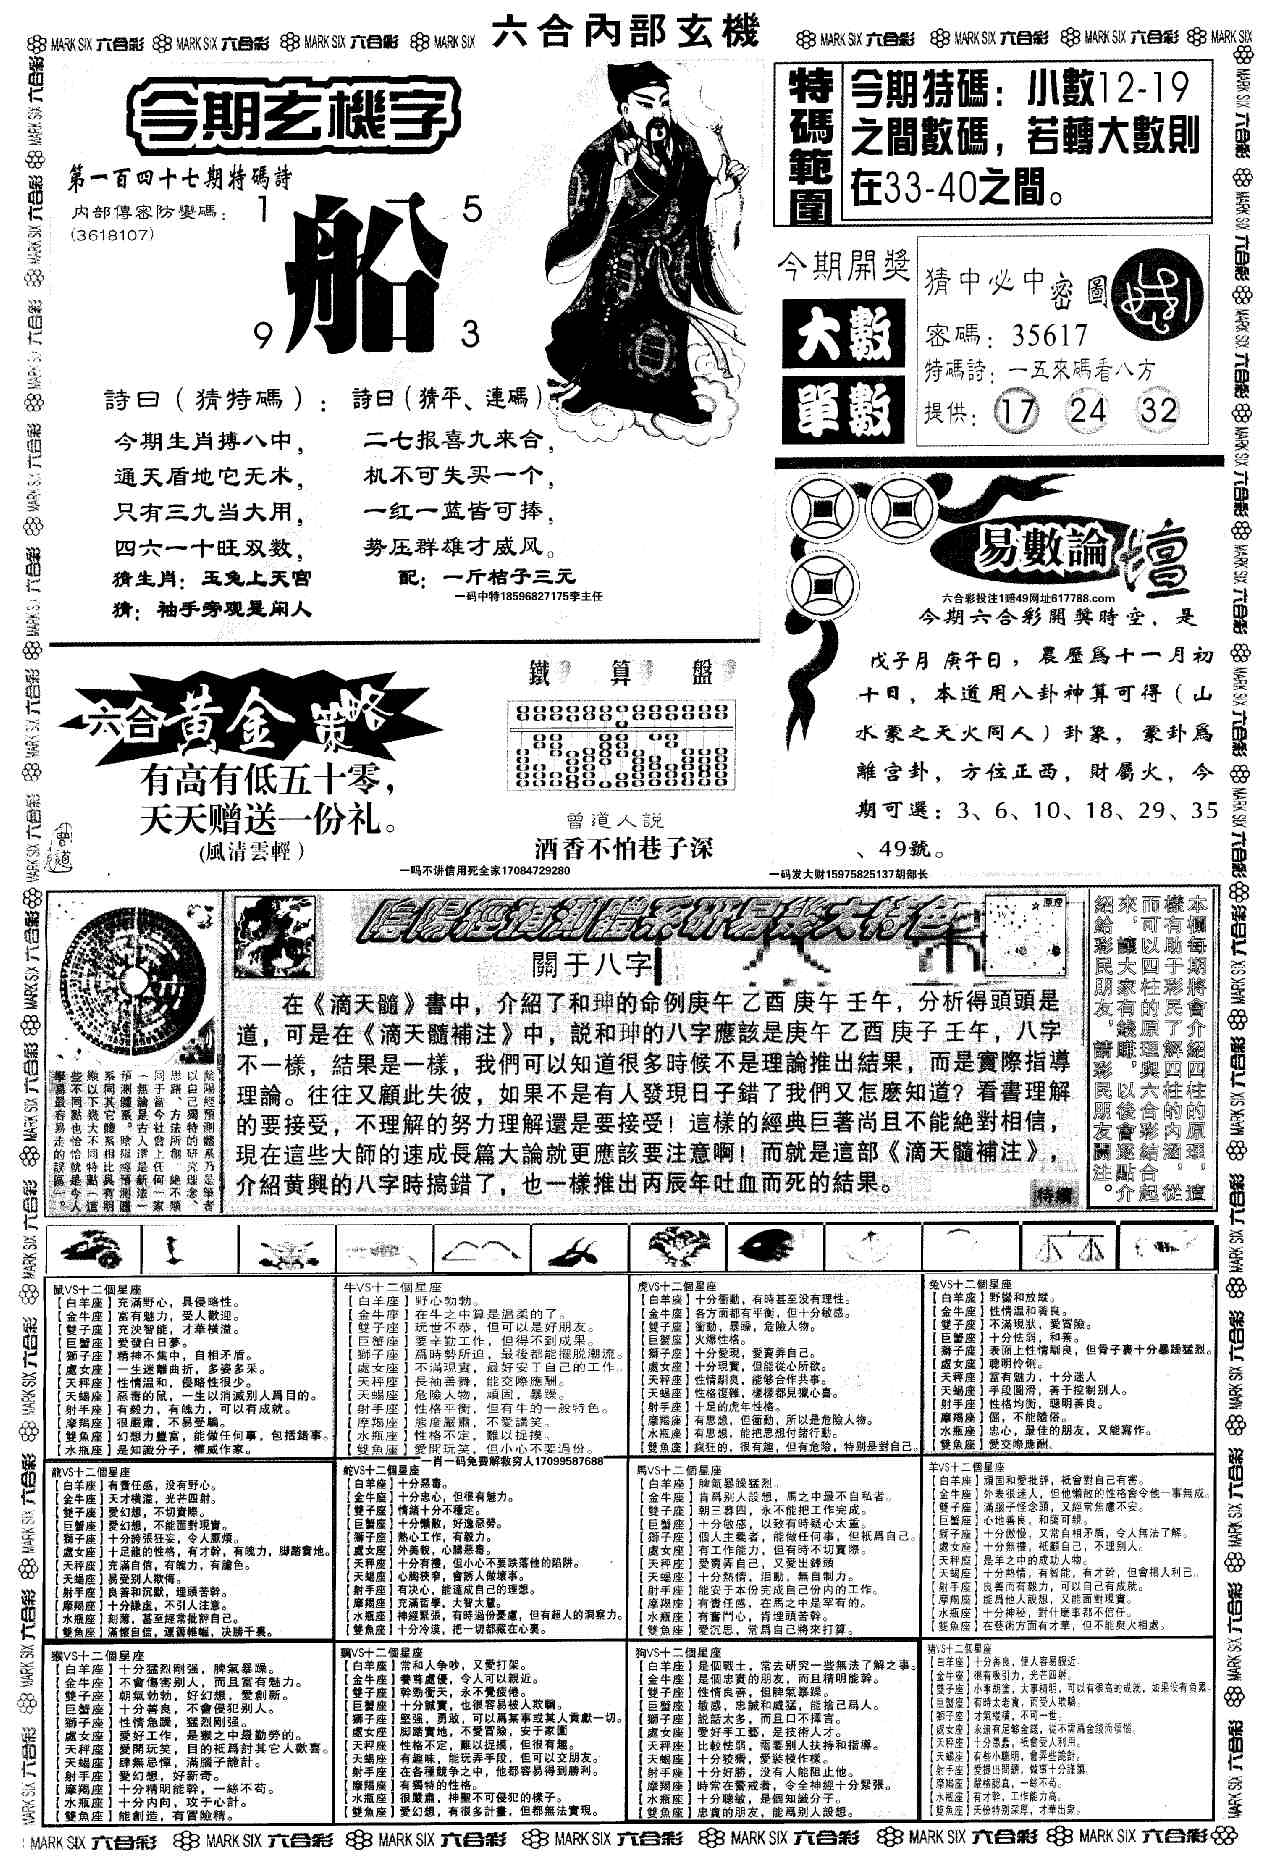 六合內部玄機
MARK SIX 六合彩
今期玄機字
第一百四十七期特碼詩
内部傳密防變碼：
(3618107)
1 5
船
9 3
詩曰（猜特碼）：
今期生肖搏八中，
通天盾地它无术，
只有三九当大用，
四六一十旺双数，
猜生肖：玉兔上天宫
猜：袖手旁观是闲人
詩曰（猜平、連碼）
二七报喜九来合，
机不可失买一个，
一红一蓝皆可捧，
势压群雄才威风。
配：一斤桔子三元
一码中特18596827175李主任
特碼範圍
今期特碼：小數12-19
之間數碼，若轉大數則
在33-40之間。
今期開獎
大數
單數
猜中必中密圖
密碼：35617
特碼詩：一五來碼看八方
提供：17 24 32
易數論壇
六合彩投注1赔49网址617788.com
今期六合彩開獎時空，是
戊子月庚午日，農歷爲十一月初
十日，本道用八卦神算可得（山
水蒙之天火同人）卦象，蒙卦爲
離宫卦，方位正西，財屬火，今
期可選：3、6、10、18、29、35
、49號。
一码发大财15975825137胡部长
六合黄金策略
有高有低五十零，
天天赠送一份礼。
(風清雲輕）
鐵算盤
曾道人説
酒香不怕巷子深
一吗不讲信用死全家17084729280
陰陽經預測體系研易幾大特色
關于八字
在《滴天髓》書中，介紹了和珅的命例庚午 乙酉 庚午 壬午，分析得頭頭是
道，可是在《滴天髓補注》中，説和珅的八字應該是庚午 乙酉 庚子 壬午，八字
不一樣，結果是一樣，我們可以知道很多時候不是理論推出結果，而是實際指導
理論。往往又顧此失彼，如果不是有人發現日子錯了我們又怎麽知道？看書理解
的要接受，不理解的努力理解還是要接受！這樣的經典巨著尚且不能絶對相信，
現在這些大師的速成長篇大論就更應該要注意啊！而就是這部《滴天髓補注》，
介紹黄興的八字時搞錯了，也一樣推出丙辰年吐血而死的結果。
待續
本欄每期將會介紹四柱的原理，這
樣有助于彩民了解四柱的内涵，從
而可以四柱的原理與六合彩結合起
來，讓大家有錢賺，以後會逐點介
紹給彩民朋友，請彩民朋友關注。
鼠VS十二個星座
【白羊座】充滿野心，具侵略性。
【金牛座】富有魅力，受人歡迎。
【雙子座】充沛智能，才華橫溢。
【巨蟹座】愛發白日夢。
【獅子座】精神不集中，自相矛盾。
【處女座】一生迷離曲折，多姿多采。
【天秤座】性情溫和，侵略性很少。
【天蝎座】惡毒的鼠，一生以消滅别人爲目的。
【射手座】有毅力，有魄力，可以有成就。
【摩羯座】很嚴肅，不易受騙。
【雙魚座】幻想力豐富，能做任何事，包括錯事。
【水瓶座】是知識分子，權威作家。
牛VS十二個星座
【白羊座】野心勃勃。
【金牛座】在牛之中算是溫柔的了。
【雙子座】玩世不恭，但可以是好朋友。
【巨蟹座】要辛勤工作，但得不到成果。
【獅子座】爲時勢所迫，最後都能擺脱潮流。
【處女座】不滿現實，最好安于自己的工作。
【天秤座】長袖善舞，能交際應酬。
【天蝎座】危險人物，頑固，暴躁。
【射手座】性格平衡，但有牛的一般特色。
【摩羯座】態度嚴肅，不愛講笑。
【水瓶座】性格不定，難以捉摸。
【雙魚座】愛開玩笑，但小心不要過份。
一肖一码免费解救穷人17099587688
虎VS十二個星座
【白羊座】十分衝動，有時甚至没有理性。
【金牛座】各方面都有平衡，但十分敏感。
【雙子座】衝動，暴躁，危險人物。
【巨蟹座】火爆性格。
【獅子座】十分愛現，愛賣弄自己。
【處女座】十分現實，但能從心所欲。
【天秤座】性情馴良，能够合作共事。
【天蝎座】性格復雜，樣樣都見獵心喜。
【射手座】十足的虎年性格。
【摩羯座】有思想，但衝動，所以是危險人物。
【水瓶座】有思想，能把思想付諸行動。
【雙魚座】瘋狂的，很有趣，但有危險，特别是對自己。
兔VS十二個星座
【白羊座】野蠻和放縱。
【金牛座】性情溫和善良。
【雙子座】不滿現狀、愛冒險。
【巨蟹座】十分怯弱，和善。
【獅子座】表面上性情馴良，但骨子裏十分暴躁猛烈。
【處女座】聰明伶俐。
【天秤座】富有魅力，十分迷人
【天蝎座】手段圓滑，善于控制别人。
【射手座】性格均衡，聰明善良。
【摩羯座】倔，不能隨俗。
【水瓶座】忠心，最佳的朋友，又能寫作。
【雙魚座】愛交際應酬。
龍VS十二個星座
【白羊座】有責任感，没有野心。
【金牛座】天才橫溢，光芒四射。
【雙子座】愛幻想，不切實際。
【巨蟹座】愛幻想，不能面對現實。
【獅子座】十分誇張狂妄，令人厭煩。
【處女座】十足龍的性格，有才幹，有魄力，脚踏實地。
【天秤座】充滿自信，有魄力，有膽色。
【天蝎座】易受别人欺侮。
【射手座】良善和沉默，埋頭苦幹。
【摩羯座】十分謙虛，不引人注意。
【水瓶座】刻薄，甚至經常批評自己。
【雙魚座】滿懷自信，運籌帷幄，决勝千裏。
蛇VS十二個星座
【白羊座】十分惡毒。
【金牛座】十分忠心，但很有魅力。
【雙子座】情緒十分不穩定。
【巨蟹座】十分懶散，好逸惡勞。
【獅子座】熱心工作，有毅力。
【處女座】外美貌，心腸惡毒。
【天秤座】十分有禮，但小心不要跌落他的陷阱。
【天蝎座】心胸狹窄，會誘人做壞事。
【射手座】有决心，能達成自己的理想。
【摩羯座】充滿哲學，大智大慧。
【水瓶座】神經緊張，有時過份憂慮，但有超人的洞察力。
【雙魚座】十分冷漠，把一切都藏在心裏。
馬VS十二個星座
【白羊座】脾氣暴躁猛烈。
【金牛座】肯爲别人設想，馬之中最不自私者。
【雙子座】朝三暮四，永不能把工作完成。
【巨蟹座】十分敏感，以致有時疑心太重。
【獅子座】個人主義者，能做任何事，但祇爲自己。
【處女座】有工作能力，但有時不切實際。
【天秤座】愛賣弄自己，又愛出鋒頭
【天蝎座】十分熱情，沮動，無自制力。
【射手座】能安于本份完成自己份内的工作。
【摩羯座】有責任感，在馬之中是罕有的。
【水瓶座】有奮鬥心，肯埋頭苦幹。
【雙魚座】愛沉思，常爲自己將來打算。
羊VS十二個星座
【白羊座】頑固和愛批評，祇會對自己有害。
【金牛座】外表很迷人，但他懶散的性格會令他一事無成。
【雙子座】滿腦子怪念頭，又經常焦慮不安。
【巨蟹座】心地善良，和藹可親。
【獅子座】十分傲慢，又常自相矛盾，令人無法了解。
【處女座】十分無禮，祇顧自己，不理别人。
【天秤座】是羊之中的成功人物。
【天蝎座】十分熱情，有智能，有才幹，但會損人利己。
【射手座】良善而有毅力，可以自己有成就。
【摩羯座】能爲他人設想，又能面對現實。
【水瓶座】十分神秘，對什麽事都不信任。
【雙魚座】在藝術方面有才華，但不能與人相處。
猴VS十二個星座
【白羊座】十分猛烈剛强，脾氣暴躁。
【金牛座】不會傷害别人，而且富有魅力。
【雙子座】朝氣勃勃，好幻想，愛創新。
【巨蟹座】十分善良，不會侵犯别人。
【獅子座】性情急躁，猛烈剛强。
【處女座】愛好工作，是猴之中最勤勞的。
【天秤座】愛開玩笑，目的祇爲討其它人歡喜。
【天蝎座】肆無忌憚，滿腦子詭計。
【射手座】愛幻想，好新奇。
【摩羯座】十分精明能幹，一絲不苟。
【水瓶座】十分内向，攻于心計。
【雙魚座】能創造，有冒險精。
鷄VS十二個星座
【白羊座】常和人争吵，又愛打架。
【金牛座】養尊處優，令人可以親近。
【雙子座】幹勁衝天，永不覺疲倦。
【巨蟹座】十分誠實，也很容易被人欺騙。
【獅子座】堅强，勇敢，可以爲無事或其人貢獻一切。
【處女座】脚踏實地，不愛冒險，安于家圍
【天秤座】性格不定，難以捉摸，但很有趣。
【天蝎座】有趣味，能玩弄手段，但可以交朋友。
【射手座】在各種競争之中，他都容易得到勝利。
【摩羯座】有獨特的性格。
【水瓶座】很嚴肅，神聖不可侵犯的樣子。
【雙魚座】愛幻想，有很多計畫，但都無法實現。
狗VS十二個星座
【白羊座】是個戰士，常去研究一些無法了解之事。
【金牛座】是個忠實的朋友，而且精明能幹。
【雙子座】性情良善，但脾氣暴躁。
【巨蟹座】敏感，忠誠和威猛，能捨己爲人。
【獅子座】説話太多，而且口不擇言。
【處女座】愛好手工藝，是技術人才。
【天秤座】比較性弱，需要别人扶持和指導。
【天蝎座】十分狡猾，愛裝模作樣。
【射手座】十分好勝，没有人能阻止他。
【摩羯座】時常在警戒着，令全神經十分緊張。
【水瓶座】十分聰敏，是個知識分子。
【雙魚座】忠貴的朋友，能爲别人設想。
猪VS十二個星座
【白羊座】十分善良，使人容易親近。
【金牛座】很有吸引力，光芒四射。
【雙子座】小事胡塗，大事精明，可以有很高的成就，如果没有負累。
【巨蟹座】有時太老實，而受人欺騙。
【獅子座】才氣縱橫，不可一世。
【天秤座】十分愚蠢，祇會受人利用。
【天蝎座】有些小聰明，會弄些詭計。
【射手座】愛提出問題，做事十分謹慎。
【摩羯座】嚴格認真，一絲不苟。
【水瓶座】有才幹，工作能力高。
【雙魚座】天份特别深厚，才華出衆。
MARK SIX 六合彩